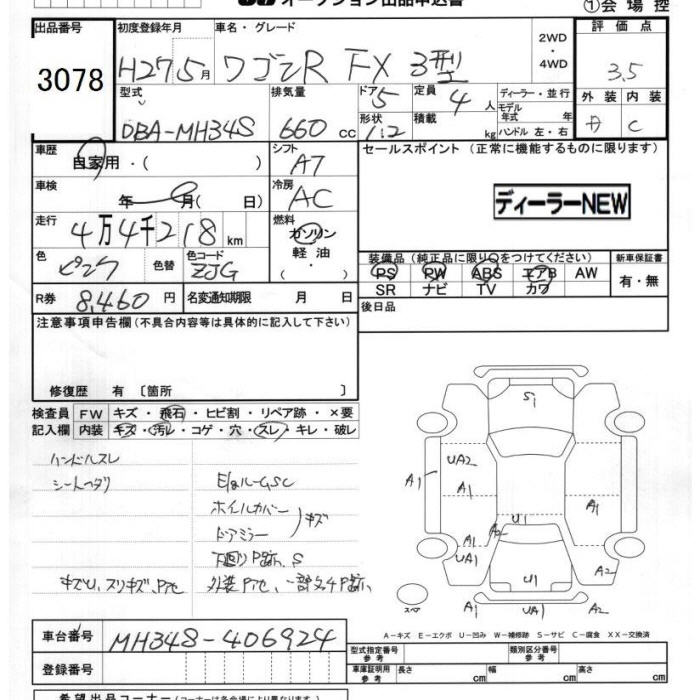 オークション出品申込書
①会場控
出品番号 初度登録年月 車名・グレード 評価点
3078 H27 5月 ワゴンR FX 3型 2WD・4WD 3.5
型式 排気量 ドア 5 定員 4人 ディーラー・並行 外装 内装
DBA-MH34S 660 cc 形状 積載 kg モデル年式 年 ハンドル 左・右 C
車歴 シフト セールスポイント(正常に機能するものに限ります)
自家用・( ) A7
車検 冷房 ディーラーNEW
年 月( 日) AC
走行 燃料
4万4千218km ガソリン
色 色替 色コード 軽油 装備品(純正品に限り○をつけてください) 新車保証書
ピンク ZJG ・( ) PS PW ABS エアB AW 有・無
SR ナビ TV カワ
R券 8,460円 名変通知期限 月 日 後日品
注意事項申告欄(不具合内容等は具体的に記入して下さい)
修復歴 有〔箇所 〕
検査員 FW キズ・飛石・ヒビ割・リペア跡・×要
記入欄 内装 キズ・汚レ・コゲ・穴・スレ・キレ・破レ
ハンドルスレ
シートヘタリ E/gルームSC
ホイルカバー
ドアミラー キズ
下廻りP跡、S
キズU、スリキズ、
S1
UA2
A1 A1 A1
A2 U1
A1 A1
UA1 U1 A2
スペア A1 UA1 A2
A−キズ E−エクボ U−凹み W−補修跡 S−サビ C−腐食 XX−交換済
車台番号 MH34S-406924 型式指定番号 参考 類別区分番号 参考
登録番号 車庫証明用 参考 長さ cm 幅 cm 高さ cm
希望出品コーナー(コーナーは各会場により異なります)